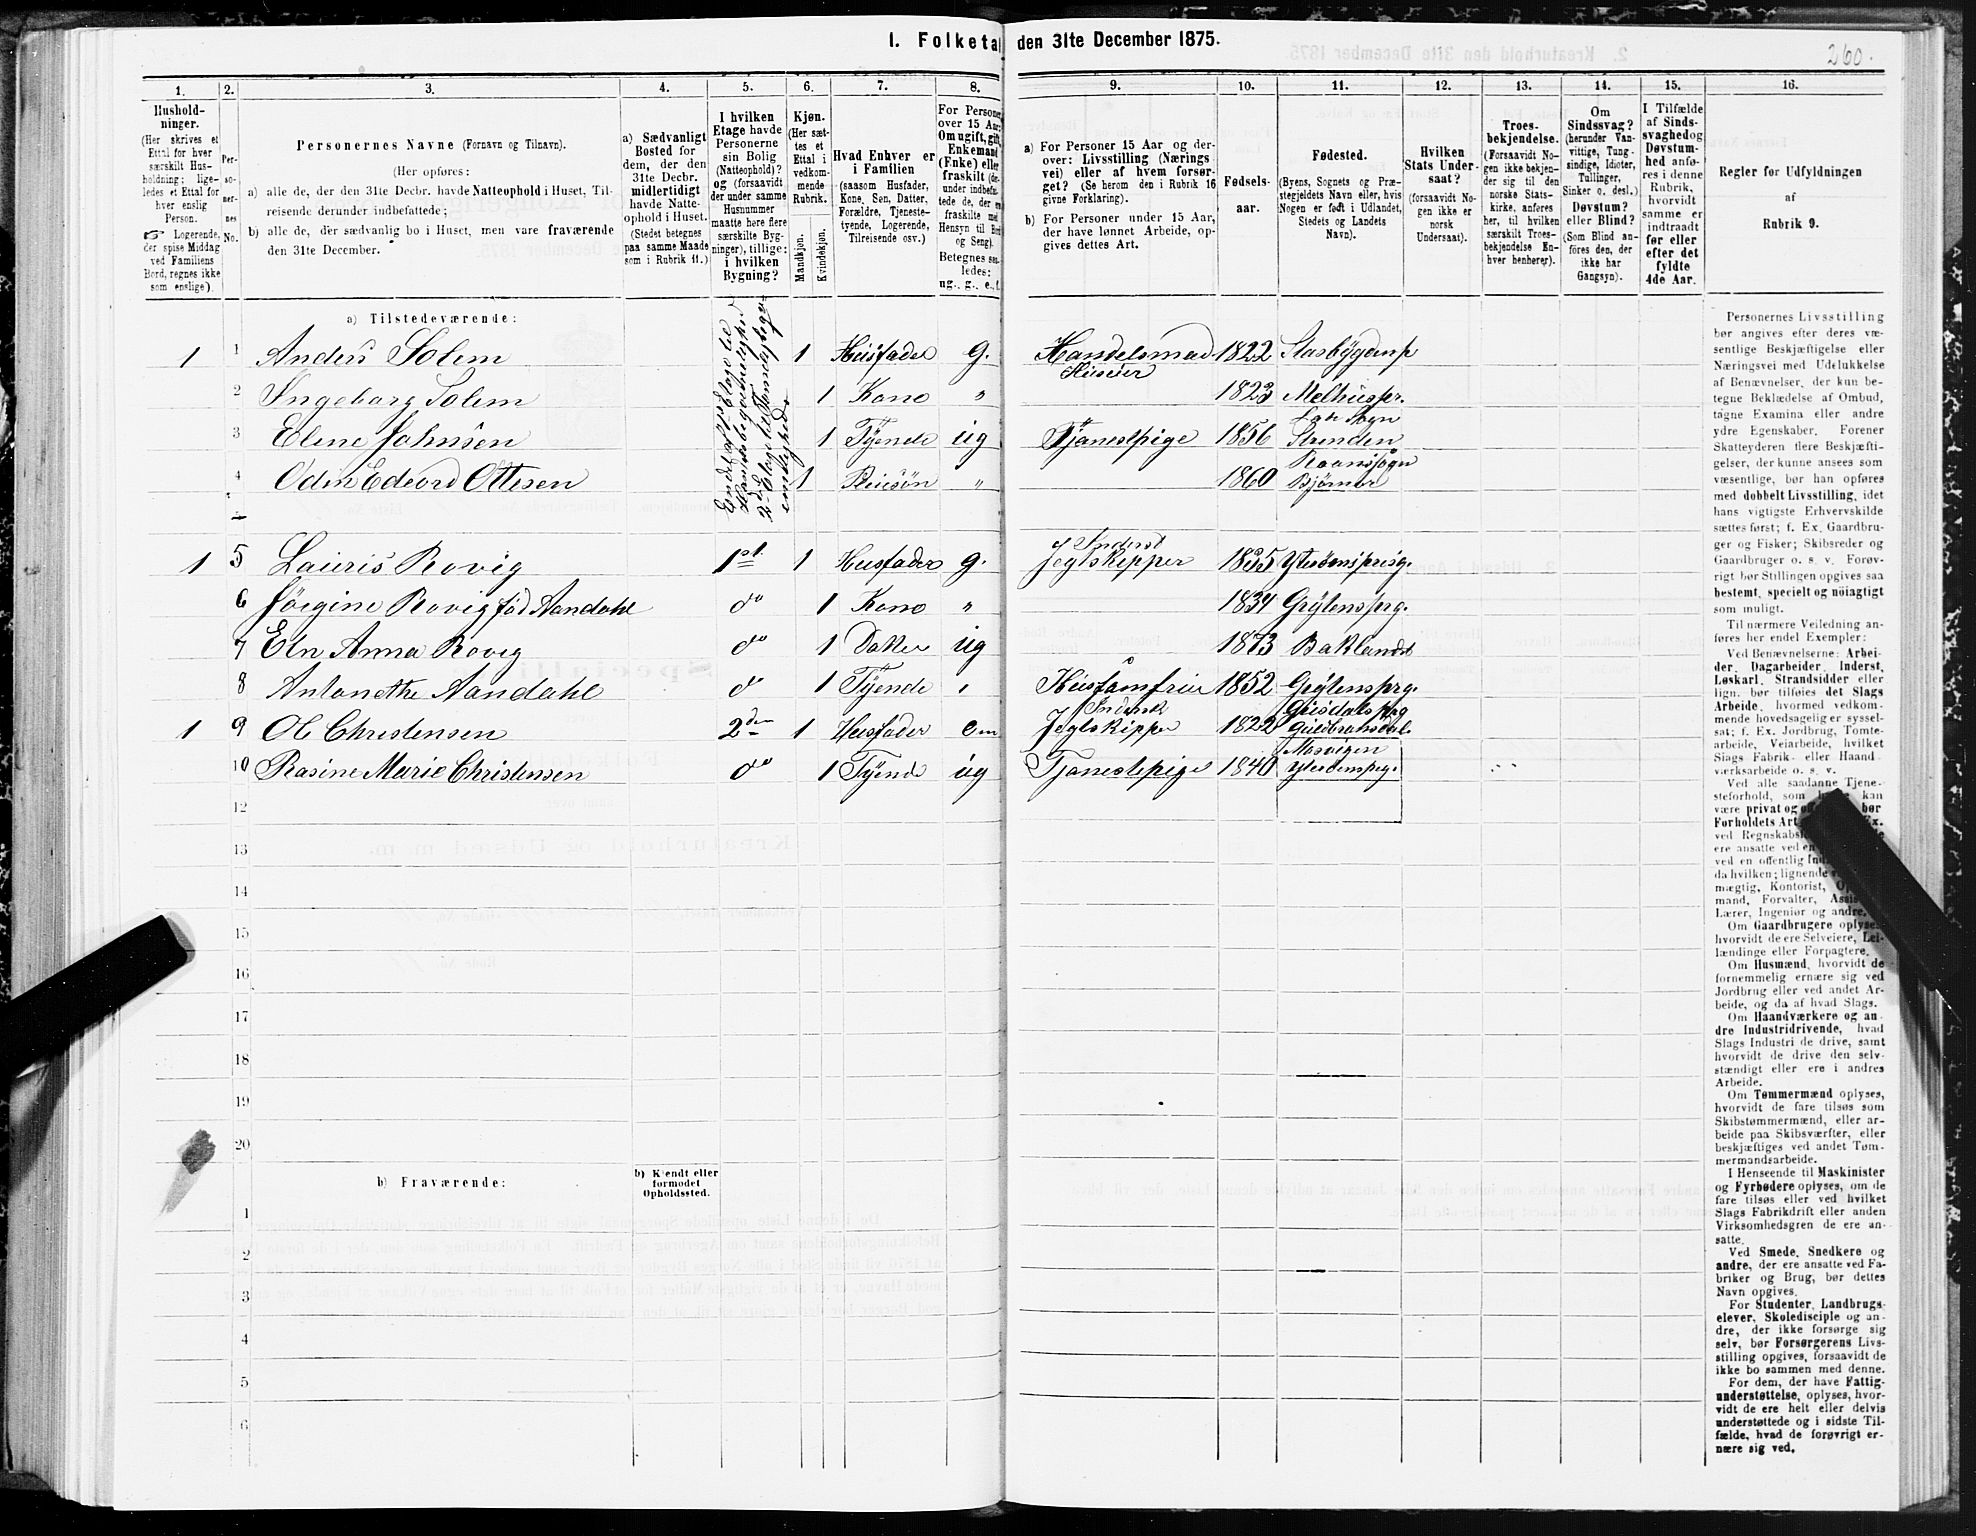 1. Folketa den 31te December 1875.
260.
1. 2. 3. 4. 5. 6. 7. 8. 9. 10. 11. 12. 13. 14. 15. 16.
Hushold-
ninger.
(Her skrives et
Ettal for hver
særskilt Hus-
holdning; lige-
ledes et Ettal for
hver enslig
Person.
Logerende,
der spise Middag
ved Familiens
Bord, regnes ikke
som enslige).
Per-
so-
ner-
nes
No.
Personernes Navne (Fornavn og Tilnavn).
(Her opføres:
a) alle de, der den 31te Decbr. havde Natteophold i Huset, Til-
reisende derunder indbefattede;
b) alle de, der sædvanlig bo i Huset, men vare fraværende
den 31te December.
a) Sædvanligt
Bosted for
dem, der den
31te Decbr.
midlertidigt
havde Natte-
ophold i Huset.
(Stedet betegnes
paa samme Maade
som i Rubrik 11.)
I hvilken
Etage havde
Personerne
sin Bolig
(Natteophold)?
og (forsaavidt
der under samme
Husnummer
maatte være flere
særskilte Byg-
ninger), tillige:
i hvilken
Bygning?
Kjøn.
(Her sæt-
tes et
Ettal i
vedkom-
mende
Rubrik.
Mandkjøn.
Kvindekjøn.
Hvad Enhver er
i Familien
(saasom Husfader,
Kone, Søn, Datter,
Forældre, Tjeneste-
tyende, Logerende,
Tilreisende osv.)
For Persone
over 15 Aar:
Om ugift, gift,
Enkemand
(Enke) eller
fraskilt (de
under indbefat-
tede de, der er
fraskilte med
Hensyn til Bord
og Seng).
Betegnes saa-
ledes:
ug., g., e., f.
a) For Personer 15 Aar og der-
over: Livsstilling (Nærings-
vei) eller af hvem forsør-
get? (Se herom den i Rubrik 16
givne Forklaring).
b) For Personer under 15 Aar,
der have lønnet Arbeide, op-
gives dettes Art.
Fødsels-
aar.
Fødested.
(Byens, Sognets og Præ-
stegjeldets Navn eller, hvis
Nogen er født i Udlandet,
Stedets og Landets
Navn).
Hvilken
Stats Under-
saat?
(forsaavidt No-
gen ikke er
norsk
Undersaat).
Troes-
bekjendelse.
(Forsaavidt No-
gen ikke bekjen-
der sig til den
norske Stats-
kirke, anføres
her, til hvilken
særskilt Troes-
bekjendelse En-
hver henhører).
Om
Sindssvag?
(herunder Van-
vittige, Tung-
sindige, Idioter,
Tullinger,
Sinker o. desl.)
Døvstum?
eller Blind?
(Som Blind an-
føres den, der
ikke har
Gangsyn).
I Tilfælde
af Sinds-
svaghed og
Døvstum-
hed anfø-
res i denne
Rubrik,
hvorvidt
samme er
indtraadt
før eller
efter det
fyldte
4de Aar.
Regler for Udfyldningen
af
Rubrik 9.
a) Tilstedeværende:
1 1 Anders Solem 1 Husfader g. Handelsmad 1822 Stadsbygd
2 Ingeborg Solem 1 Kone " 1823 Melhuspr.
3 Elene Johnsen 1 Tyende ug Tjenestpige 1856 Strinden
4 Odin Edvard Ottesen 1 Pleiesøn " 1860 Bjørnør
1 5 Lauris Rovig 1st 1 Husfader g. Inderst Jegtskipper 1835 Yterøensprg.
6 Jørgine Rovig fød Aandahl do 1 Kone " 1834 Grytensprg.
7 Eln Anna Rovig do 1 Datter ug 1873 Baklandet
8 Antonette Aandahl do 1 Tyende " 1852 Grytensprg.
1 9 Ol Christensen 2den 1 Husfader em Inderst Jegtskipper 1822 Gudbransdal.
10 Rasine Marie Christensen do 1 Tyende ug Tjenestepige 1840 Mosvigen Yterøensprg.
12
13
14
15
16
17
18
19
20
b) Fraværende:
b) Kjendt eller
formodet
Opholdssted.
1
2
3
4
5
6
Personernes Livsstilling
bør angives efter deres væ-
sentlige Beskjæftigelse eller
Næringsvei med Udelukkelse
af Benævnelser, der kun be-
tegne Beklædelse af Ombud,
tagne Examina eller andre
ydre Egenskaber. Forener
Skatteyderen flere Beskjæfti-
gelser, der kunne ansees som
væsentlige, bør han opføres
med dobbelt Livsstilling, idet
hans vigtigste Erhvervskilde
sættes først; f. Ex. Gaardbru-
ger og Fisker; Skibsreder og
Gaardbruger o. s. v. Forøv-
rigt bør Stillingen opgives saa
bestemt, specielt og nøiagtigt
som muligt.
Til nærmere Veiledning an-
føres her endel Exempler:
Ved Benævnelserne: Arbei-
der, Dagarbeider, Inderst,
Løskarl, Strandsidder eller
lign. bør tilføies det Slags
Arbeide, hvormed vedkom-
mende hovedsagelig er syssel-
sat; f. Ex. Jordbrug, Tomte-
arbeide, Veiarbeide, hvilket
Slags Fabrik- eller Haand-
værksarbeide o. s. v.
Ved alle saadanne Tjene-
steforhold, som kan
være privat og bør
Forholdets Art Ex.
ved Regnskabs
ere ansatte ved en
ved en offentlig
da hvilken; lignende
mægtig, Kontorist,
mand, Forvalter,
Lærer, Ingeniør og andre.
Om Gaardbrugere oplyses,
hvorvidt de ere Selveiere, Lei-
lændinge eller Forpagtere.
Om Husmænd, hvorvidt de
fornemmelig ernære sig ved
Jordbrug eller ved andet Ar-
beide, og da af hvad Slags.
Om Haandværkere og an-
dre Industridrivende, hvad
Slags Industri de drive, samt
hvorvidt de drive den selv-
stændigt eller ere i andres
Arbeide.
Om Tømmermænd oplyses,
hvorvidt de fare tilsøs som
Skibstømmermænd, eller ar-
beide paa Skibsværfter, eller
beskjæftiges ved andet Tøm-
mermandsarbeide.
I Henseende til Maskinister
og Fyrbødere oplyses, om de
fare tilsøs eller ved hvilket
Slags Fabrikdrift eller anden
Virksomhedsgren de ere an-
satte.
Ved Smede, Snedkere og
andre, der ere ansatte ved Fa-
briker og Brug, bør dettes
Navn opgives.
For Studenter, Landbrugs-
elever, Skoledisciple og an-
dre, der ikke forsørge sig
selv, bør Forsørgerens Livs-
stilling opgives, forsaavidt de
ikke bo sammen med denne.
For dem, der have Fattig-
understøttelse, oplyses, hvor-
vidt de ere helt eller delvis
understøttede og i sidste Til-
fælde, hvad de forøvrigt er-
nære sig ved.